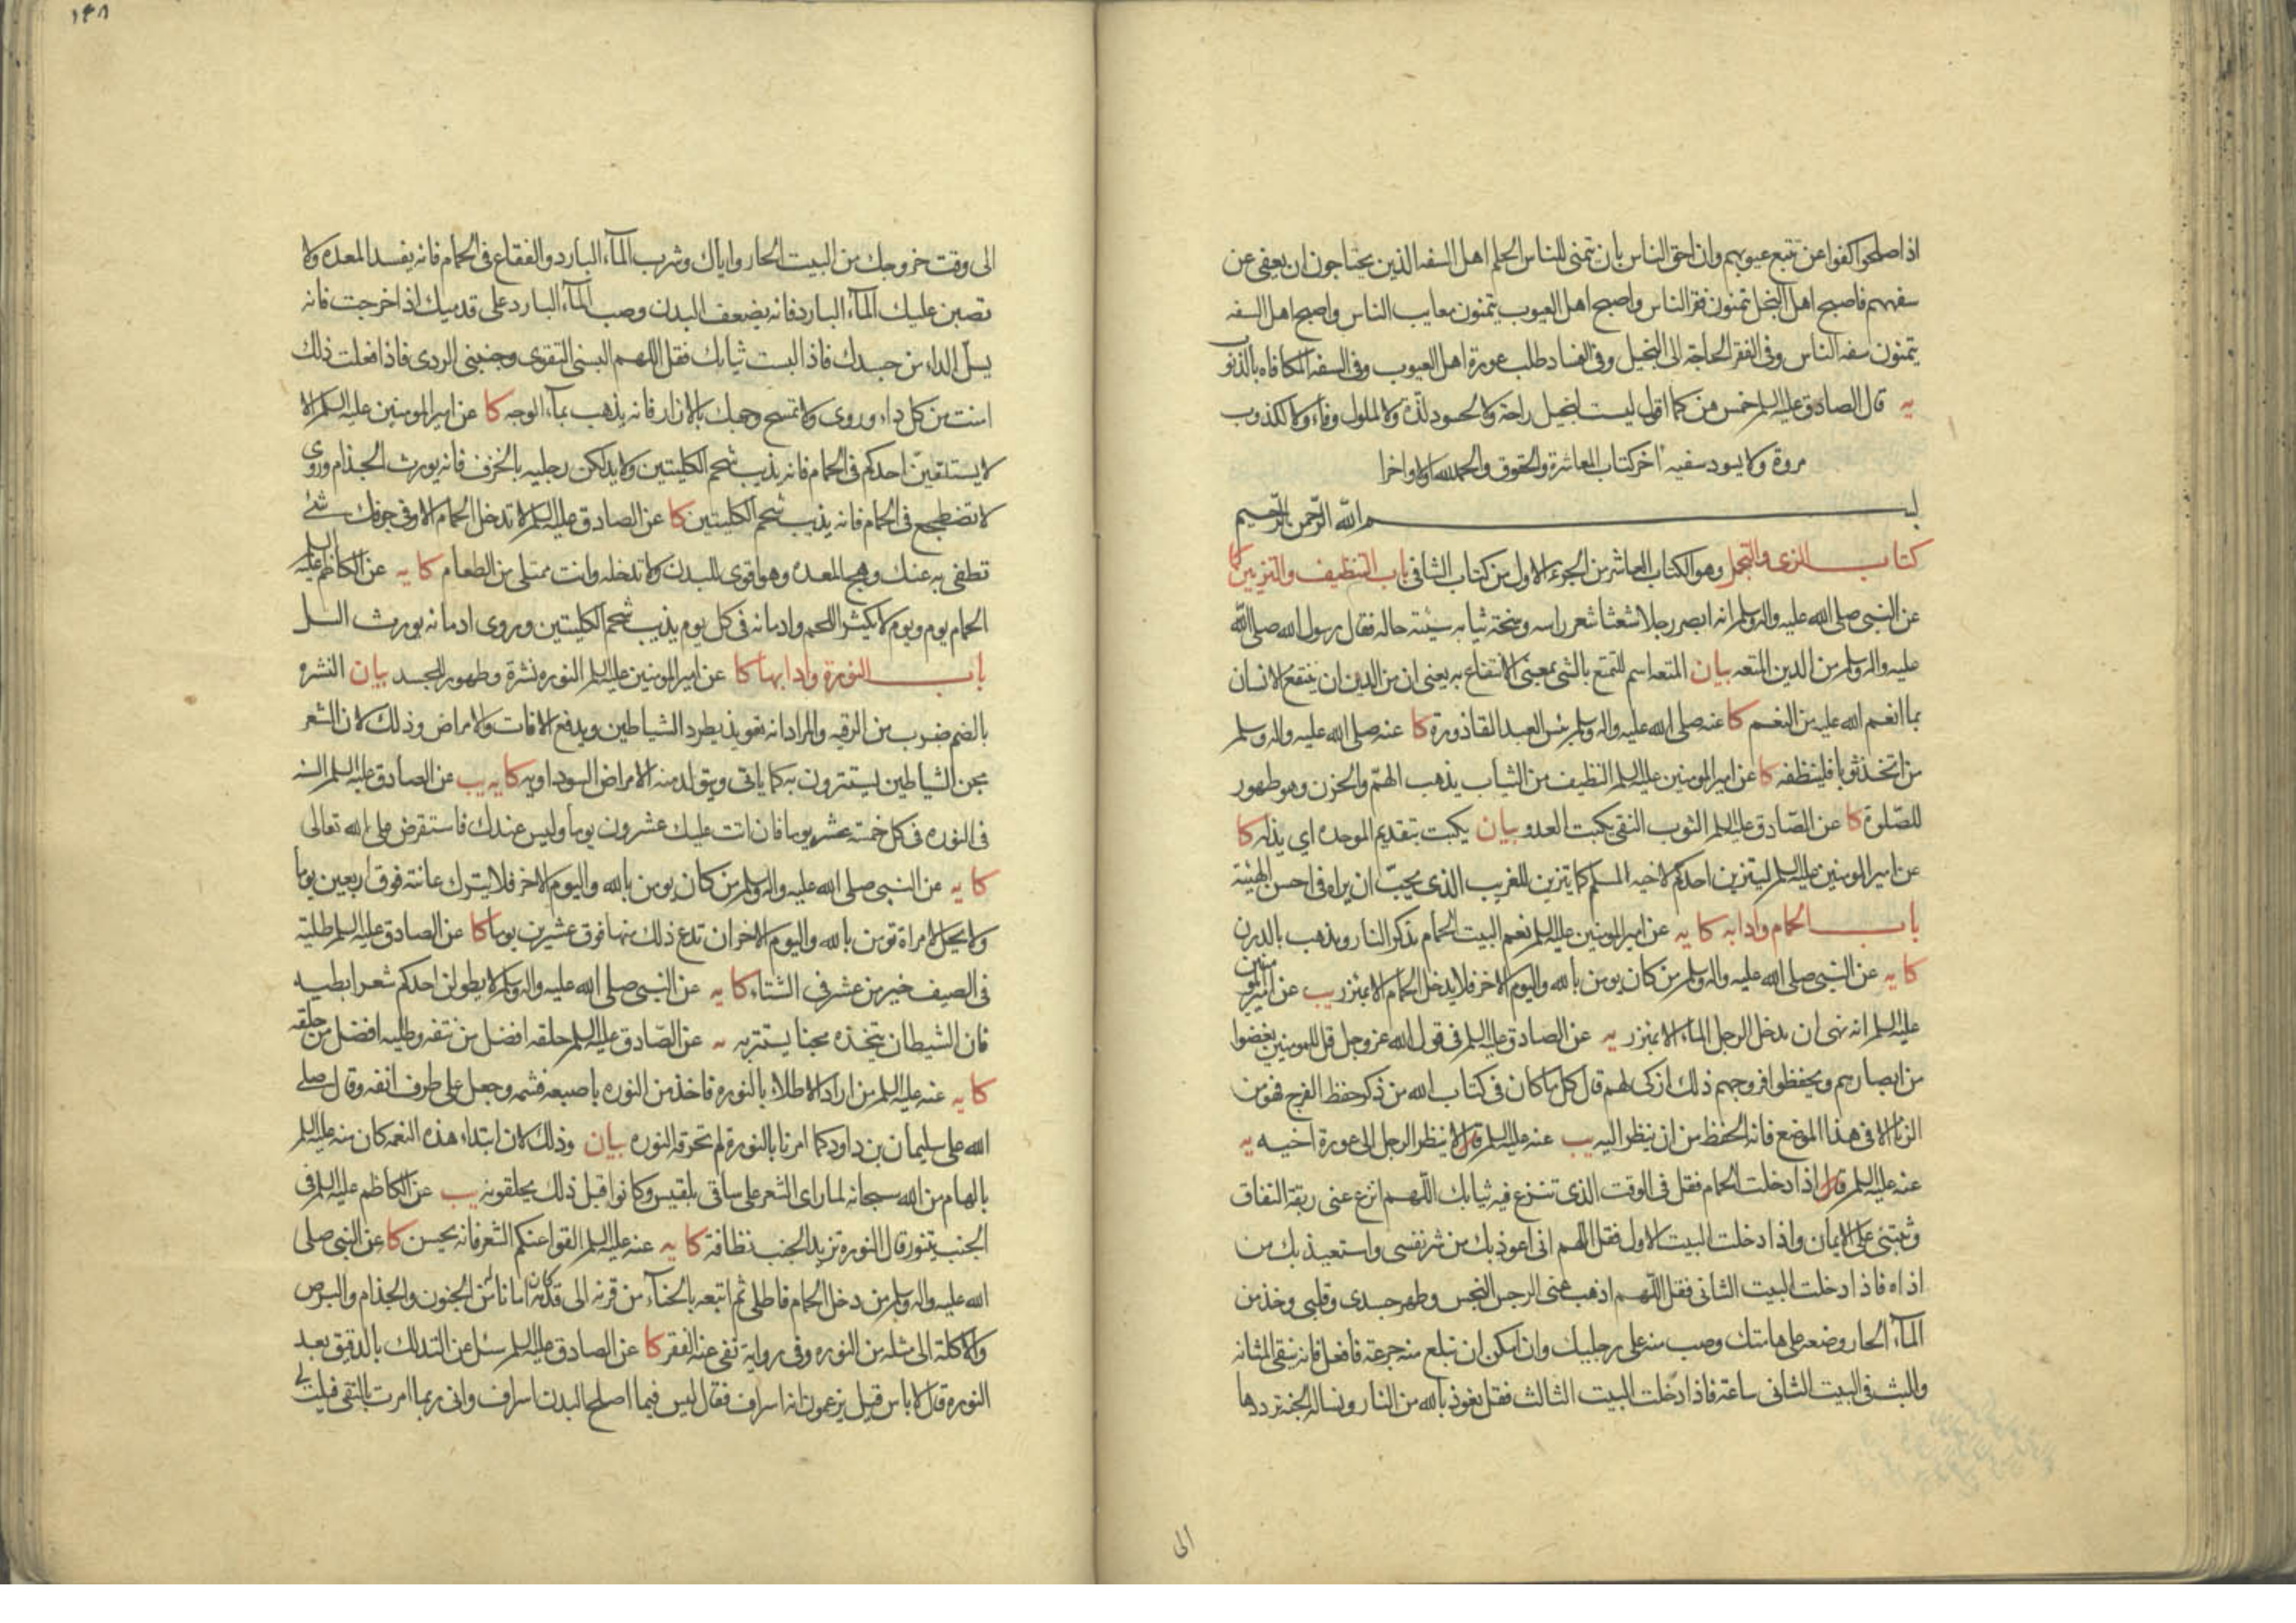 اذا صلحوا كفوا عن تتبع عيوبهم وان احق الناس بان يتمنى للناس الحلم اهل السفه الذين يحتاجون ان يعفى عن
سفههم فاصبح اهل البخل يتمنون فقر الناس واصبح اهل العيوب يتمنون معايب الناس واصبح اهل السفه
يتمنون سفه الناس وفى الفقر الحاجة الى البخيل وفى الفساد طلب عورة اهل العيوب وفى السفه المكافاه بالذنوب
يه قال الصادق عليه السلم خمس هن كما اقول ليست لبخيل راحة ولا لحسود لذة ولا لملول وفاء ولا لكذوب
مروة ولا يسود سفيه اخر كتاب المعاشرة والحقوق والحمد لله اولا واخرا
بسم الله الرحمن الرحيم
كتاب الزى والتجمل وهو الكتاب العاشر من الجزء الاول من كتاب الشافى باب التنظيف والتزيين كا
عن النبى صلى الله عليه واله وسلم انه ابصر رجلا شعثا شعر راسه وسخة ثيابه سيئة حاله فقال رسول الله صلى الله
عليه واله وسلم من الدين المتعه بيان المتعه اسم للتمتع بالشى بمعنى الانتفاع به يعنى ان من الدين ان ينتفع الانسان
بما انعم الله عليه من النعم كا عنه صلى الله عليه واله وسلم بئس العبد القاذورة كا عنه صلى الله عليه واله وسلم
من اتخذ ثوبا فلينظفه كا عن امير المومنين عليه السلم النظيف من الثياب يذهب الهم والحزن وهو طهور
للصلوة كا عن الصادق عليه السلم الثوب النقى يكبت العدو بيان يكبت بتقديم الموحده اى يذله كا
عن امير المومنين عليه السلم ليتزين احدكم لاخيه المسلم كما يتزين للغريب الذى يحب ان يراه فى احسن الهيئة
باب الحمام وادابه كا يه عن امير المومنين عليه السلم نعم البيت الحمام يذكر النار ويذهب بالدرن
كا يه عن النبى صلى الله عليه واله وسلم من كان يومن بالله واليوم الاخر فلا يدخل الحمام الا بمئزر يب عن امير المومنين
عليه السلم انه نهى ان يدخل الرجل الماء الا بمئزر يه عن الصادق عليه السلم فى قول الله عز وجل قل للمومنين يغضوا
من ابصارهم ويحفظوا فروجهم ذلك ازكى لهم قال كل ما كان فى كتاب الله من ذكر حفظ الفرج فهو من
الزنا الا فى هذا الموضع فانه للحفظ من ان ينظر اليه يب عنه عليه السلم قال لا ينظر الرجل الى عورة اخيه يه
عنه عليه السلم قال اذا دخلت الحمام فقل فى الوقت الذى تنزع فيه ثيابك اللهم انزع عنى ربقة النفاق
وثبتنى على الايمان واذا دخلت البيت الاول فقل اللهم انى اعوذ بك من شر نفسى واستعيذ بك من
اذاه فاذا دخلت البيت الثانى فقل اللهم اذهب عنى الرجس النجس وطهر جسدى وقلبى وخذ من
المآء الحار وضعه على هامتك وصب منه على رجليك وان امكن ان تبلع منه جرعة فافعل فانه ينقى المثانه
والبث فى البيت الثانى ساعة فاذا دخلت البيت الثالث فقل نعوذ بالله من النار ونساله الجنة ترددها
الى
١٤٨
الى وقت خروجك من البيت الحار واياك وشرب المآء البارد والفقاع فى الحمام فانه يفسد المعده ولا
تصبن عليك المآء البارد فانه يضعف البدن وصب المآء البارد على قدميك اذا خرجت فانه
يسل الداء من جسدك فاذا لبست ثيابك فقل اللهم البسنى التقوى وجنبنى الردى فاذا فعلت ذلك
امنت من كل داء وروى ولا تمسح وجهك بالازار فانه يذهب بمآء الوجه كا عن امير المومنين عليه السلم الا
لا يستلقين احدكم فى الحمام فانه يذيب شحم الكليتين ولا يدلكن رجليه بالخزف فانه يورث الجذام وروى
لا تضطجع فى الحمام فانه يذيب شحم الكليتين كا عن الصادق عليه السلم لا تدخل الحمام الا وفى جوفك شئ
تطفى به عنك وهج المعده وهو اقوى للبدن ولا تدخله وانت ممتلى من الطعام كا يه عن الكاظم عليه السلم
الحمام يوم ويوم لا يكثر اللحم وادمانه فى كل يوم يذيب شحم الكليتين وروى ادمانه يورث السل
باب النورة وادابها كا عن امير المومنين عليه السلم النوره نشرة وطهور للجسد بيان النشره
بالضم ضرب من الرقيه والمراد انه تعويذ يطرد الشياطين ويدفع الافات والامراض وذلك لان الشعر
مجن الشياطين يستترون به كما ياتى ويتولد منه الامراض السوداويه كا يه يب عن الصادق عليه السلم السنه
فى النوره فى كل خمسة عشر يوما فان اتت عليك عشرون يوما وليس عندك فاستقرض على الله تعالى
كا يه عن النبى صلى الله عليه واله وسلم من كان يومن بالله واليوم الاخر فلا يترك عانته فوق اربعين يوما
ولا يحل لامراة تومن بالله واليوم الاخر ان تدع ذلك منها فوق عشرين يوما كا عن الصادق عليه السلم طلية
فى الصيف خير من عشر فى الشتاء كا يه عن النبى صلى الله عليه واله وسلم لا يطولن احدكم شعر ابطيه
فان الشيطان يتخذه مجنا يستتر به يه عن الصادق عليه السلم حلقه افضل من نتفه وطليه افضل من حلقه
كا يه عنه عليه السلم من اراد الاطلاء بالنوره فاخذ من النوره باصبعه فشمه وجعل على طرف انفه وقال صلى
الله على سليمان بن داود كما امرنا بالنورة لم تحرقه النوره بيان وذلك لان ابتداء هذه النعمه كان منه عليه السلم
بالهام من الله سبحانه لما راى الشعر على ساقى بلقيس وكانوا قبل ذلك يحلقونه يب عن الكاظم عليه السلم فى
الجنب يتنور قال النوره تزيد الجنب نظافة كا يه عنه عليه السلم القوا عنكم الشعر فانه يحسن كا عن النبى صلى
الله عليه واله وسلم من دخل الحمام فاطلى ثم اتبعه بالحنآء من قرنه الى قدمه كان امانا من الجنون والجذام والبرص
والاكلة الى مثله من النوره وفى رواية نفى عنه الفقر كا عن الصادق عليه السلم سئل عن التدلك بالدقيق بعد
النوره قال لا باس قيل يزعمون انه اسراف فقال ليس فيما اصلح البدن اسراف وانى ربما امرت بالنقى فيلت لى